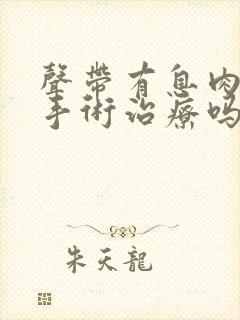 聲帶有息肉
手術治療嗎
朱天龍